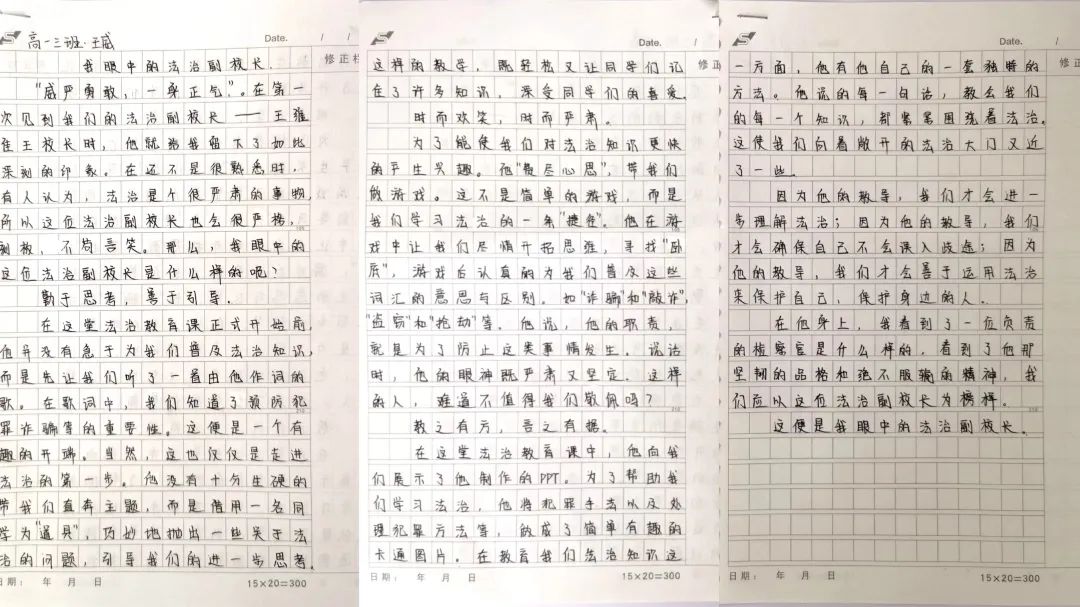 高一三班·王威
Date. / /
修正栏
我眼中的法治副校长.
"威严勇敢,一身正气"。在第一
次见到我们的法治副校长——王雅
佳王校长时,他就给我留下了如此
深刻的印象。在还不是很熟悉时,
有人认为,法治是个很严肃的事物,
所以这位法治副校长也会很严格,
刻板,不苟言笑。那么,我眼中的
这位法治副校长是什么样的呢?
勤于思考,善于引导.
在这堂法治教育课正式开始前,
他并没有急于为我们普及法治知识,
而是先让我们听了一首由他作词的
歌。在歌词中,我们知道了预防犯
罪诈骗等的重要性。这便是一个有
趣的开端。当然,这也仅仅是走进
法治的第一步。他没有十分生硬的
带我们直奔主题,而是借用一名同
学为"道具",巧妙地抛出一些关于法
治的问题,引导我们的进一步思考.
日期: 年 月 日
15×20=300
Date. /
修正
这样的教学,既轻松又让同学们记
住了许多知识,深受同学们的喜爱.
时而欢笑,时而严肃.
为了能使我们对法治知识更快
的产生兴趣。他"费尽心思",带我们
做游戏。这不是简单的游戏,而是
我们学习法治的一条"捷径"。他在游
戏中让我们尽情开拓思维,寻找"卧
底",游戏后认真的为我们普及这些
词汇的意思与区别。如"诈骗"和"敲诈",
"盗窃"和"抢劫"等.他说,他的职责,
就是为了防止这类事情发生。说话
时,他的眼神既严肃又坚定.这样
的人,难道不值得我们敬佩吗?
210
教之有方,言之有据.
在这堂法治教育课中,他向我
们展示了他制作的PPT。为了帮助我
们学习法治,他将犯罪手法以及处
理犯罪方法等,做成了简单有趣的
卡通图片。在教育我们法治知识这
日期: 年 月 日
15×20=300
Date. /
修正
一方面,他有他自己的一套独特的
方法。他说的每一句话,教会我们
的每一个知识,都紧紧围绕着法治。
这使我们向着敞开的法治大门又近
了一些.
因为他的教导,我们才会进一
步理解法治;因为他的教导,我们
才会确保自己不会误入歧途;因为
他的教导,我们才会善于运用法治
来保护自己,保护身边的人.
在他身上,我看到了一位负责
的检察官是什么样的,看到了他那
坚韧的品格和绝不服输的精神,我
们应以这位法治副校长为榜样。
210
这便是我眼中的法治副校长.
日期: 年 月 日
15×20=300